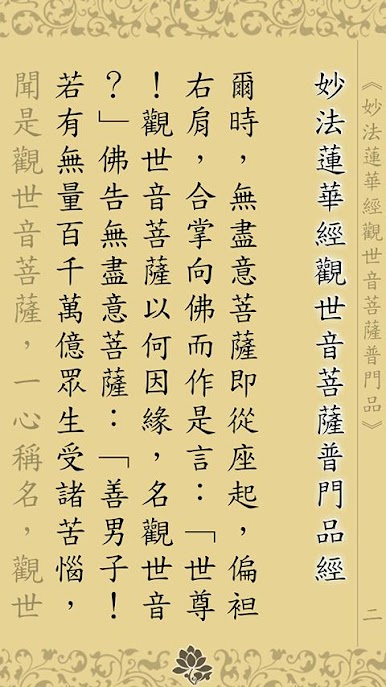 《妙法蓮華經觀世音菩薩普門品》
二
妙法蓮華經觀世音菩薩普門品經
爾時，無盡意菩薩即從座起，偏袒
右肩，合掌向佛而作是言：「世尊
！觀世音菩薩以何因緣，名觀世音
？」佛告無盡意菩薩：「善男子！
若有無量百千萬億眾生受諸苦惱，
聞是觀世音菩薩，一心稱名，觀世